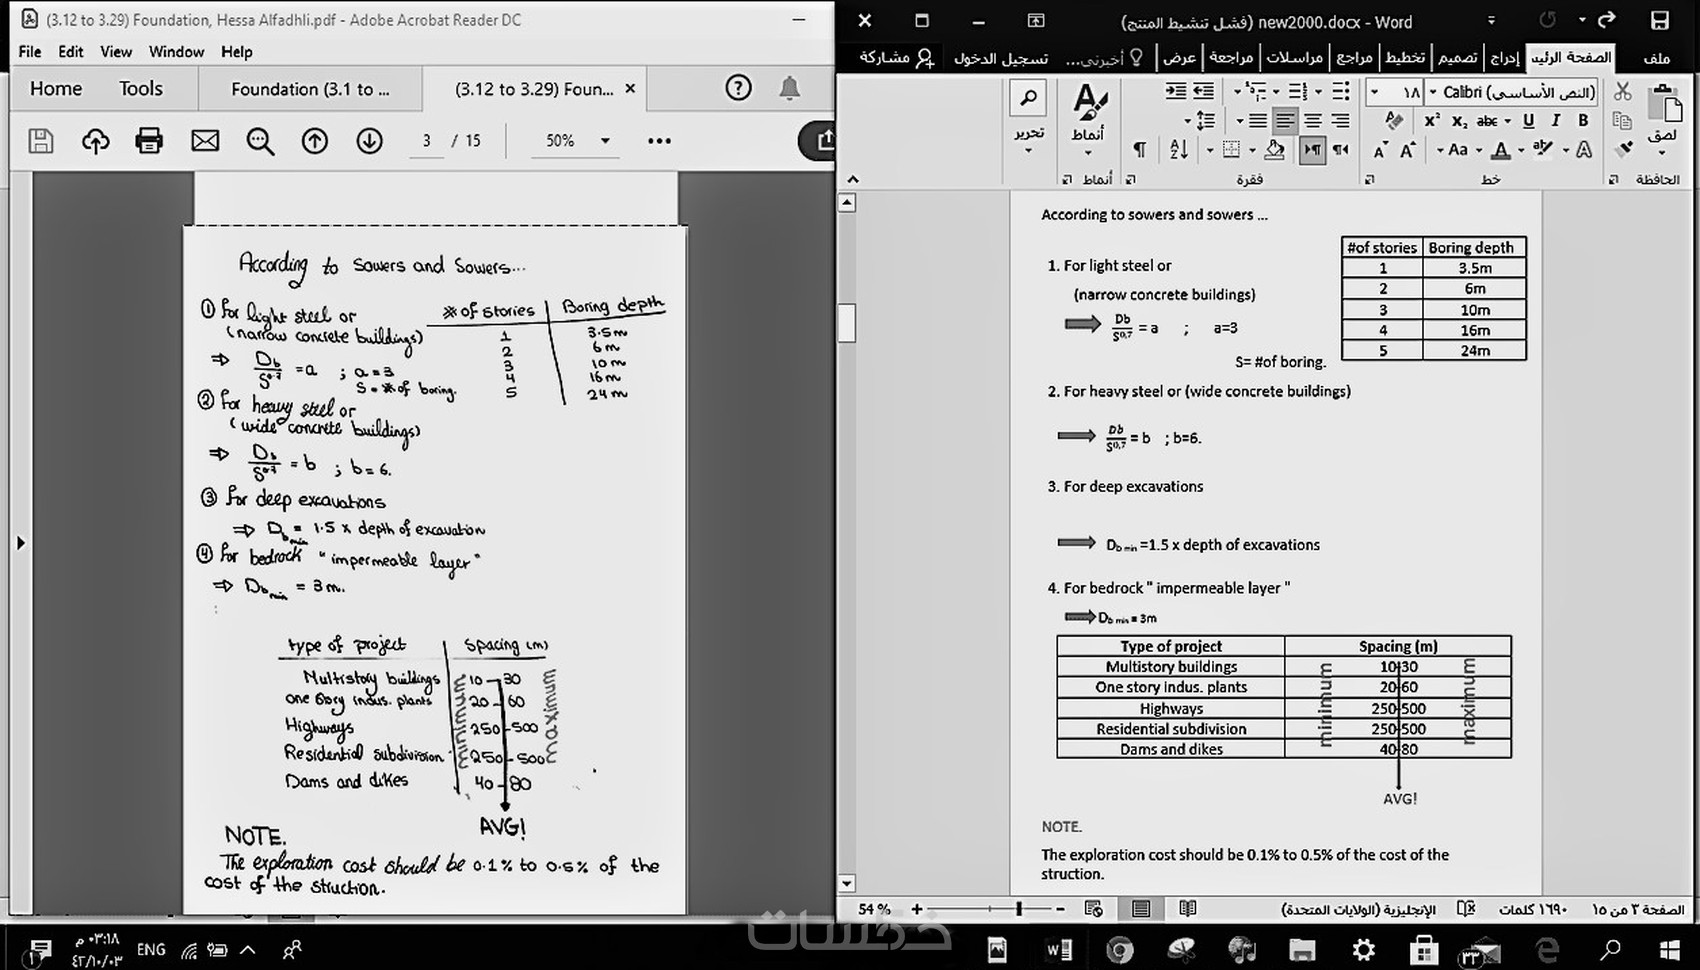 (3.12 to 3.29) Foundation, Hessa Alfadhli.pdf - Adobe Acrobat Reader DC
File Edit View Window Help
Home Tools Foundation (3.1 to ... (3.12 to 3.29) Foun... ×
3 / 15 50%
According to Sowers and Sowers...
① For light steel or
(narrow concrete buildings)
⇒ Db/S^0.7 = a ; a=3
S = # of boring.
# of stories Boring depth
1 3.5m
2 6m
3 10m
4 16m
5 24m
② For heavy steel or
(wide concrete buildings)
⇒ Db/S^0.7 = b ; b=6.
③ For deep excavations
⇒ Db min = 1.5 x depth of excavation
④ For bedrock "impermeable layer"
⇒ Db min = 3m.
type of project Spacing (m)
Multistory buildings 10 - 30
one story indus. plants 20 - 60
Highways 250 - 500
Residential subdivision 250 - 500
Dams and dikes 40 - 80
minimum
maximum
AVG!
NOTE.
The exploration cost should be 0.1% to 0.5% of the
cost of the struction.
new2000.docx - Word (فشل تنشيط المنتج)
ملف الصفحة الرئيس إدراج تصميم تخطيط مراجع مراسلات مراجعة عرض أخبرني... تسجيل الدخول مشاركة
Calibri (النص الأساسي) ١٨
لصق
B I U abc X₂ X²
A Aa A A
أنماط
تحرير
الحافظة خط فقرة أنماط
According to sowers and sowers ...
1. For light steel or
(narrow concrete buildings)
Db/S^0,7 = a ; a=3
S= #of boring.
#of stories Boring depth
1 3.5m
2 6m
3 10m
4 16m
5 24m
2. For heavy steel or (wide concrete buildings)
Db/S^0,7 = b ; b=6.
3. For deep excavations
Db min =1.5 x depth of excavations
4. For bedrock " impermeable layer "
Db min = 3m
Type of project Spacing (m)
Multistory buildings 10-30
One story indus. plants 20-60
Highways 250-500
Residential subdivision 250-500
Dams and dikes 40-80
minimum
maximum
AVG!
NOTE.
The exploration cost should be 0.1% to 0.5% of the cost of the
struction.
الصفحة ٣ من ١٥ ١٦٩٠ كلمات الإنجليزية (الولايات المتحدة) 54 %
خمسات
٠٣:١٨ م
٤٢/١٠/٠٣
ENG
٢٣